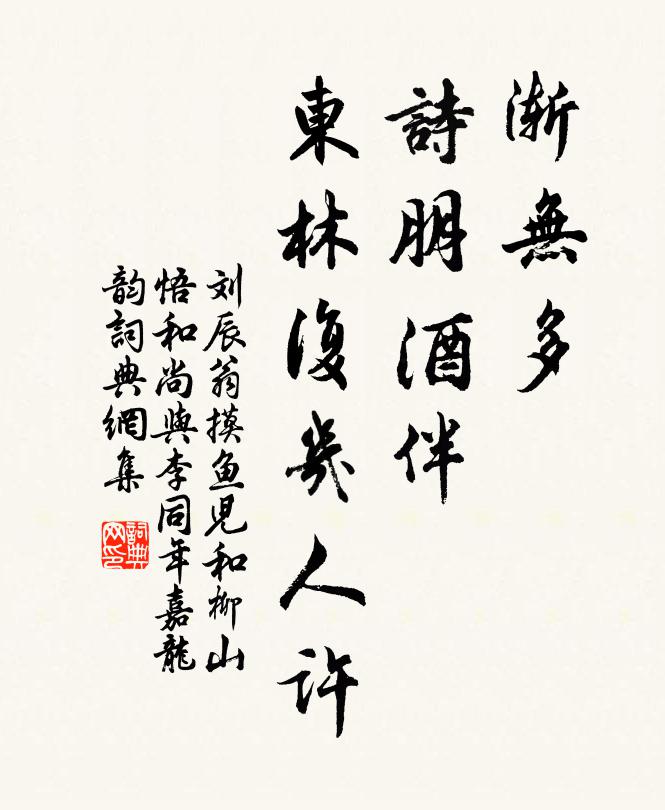 漸無多
詩朋酒伴
東林復幾人許
刘辰翁摸鱼児和柳山
悟和尚與李同年嘉龍
韵詞典網集
詞典
网印